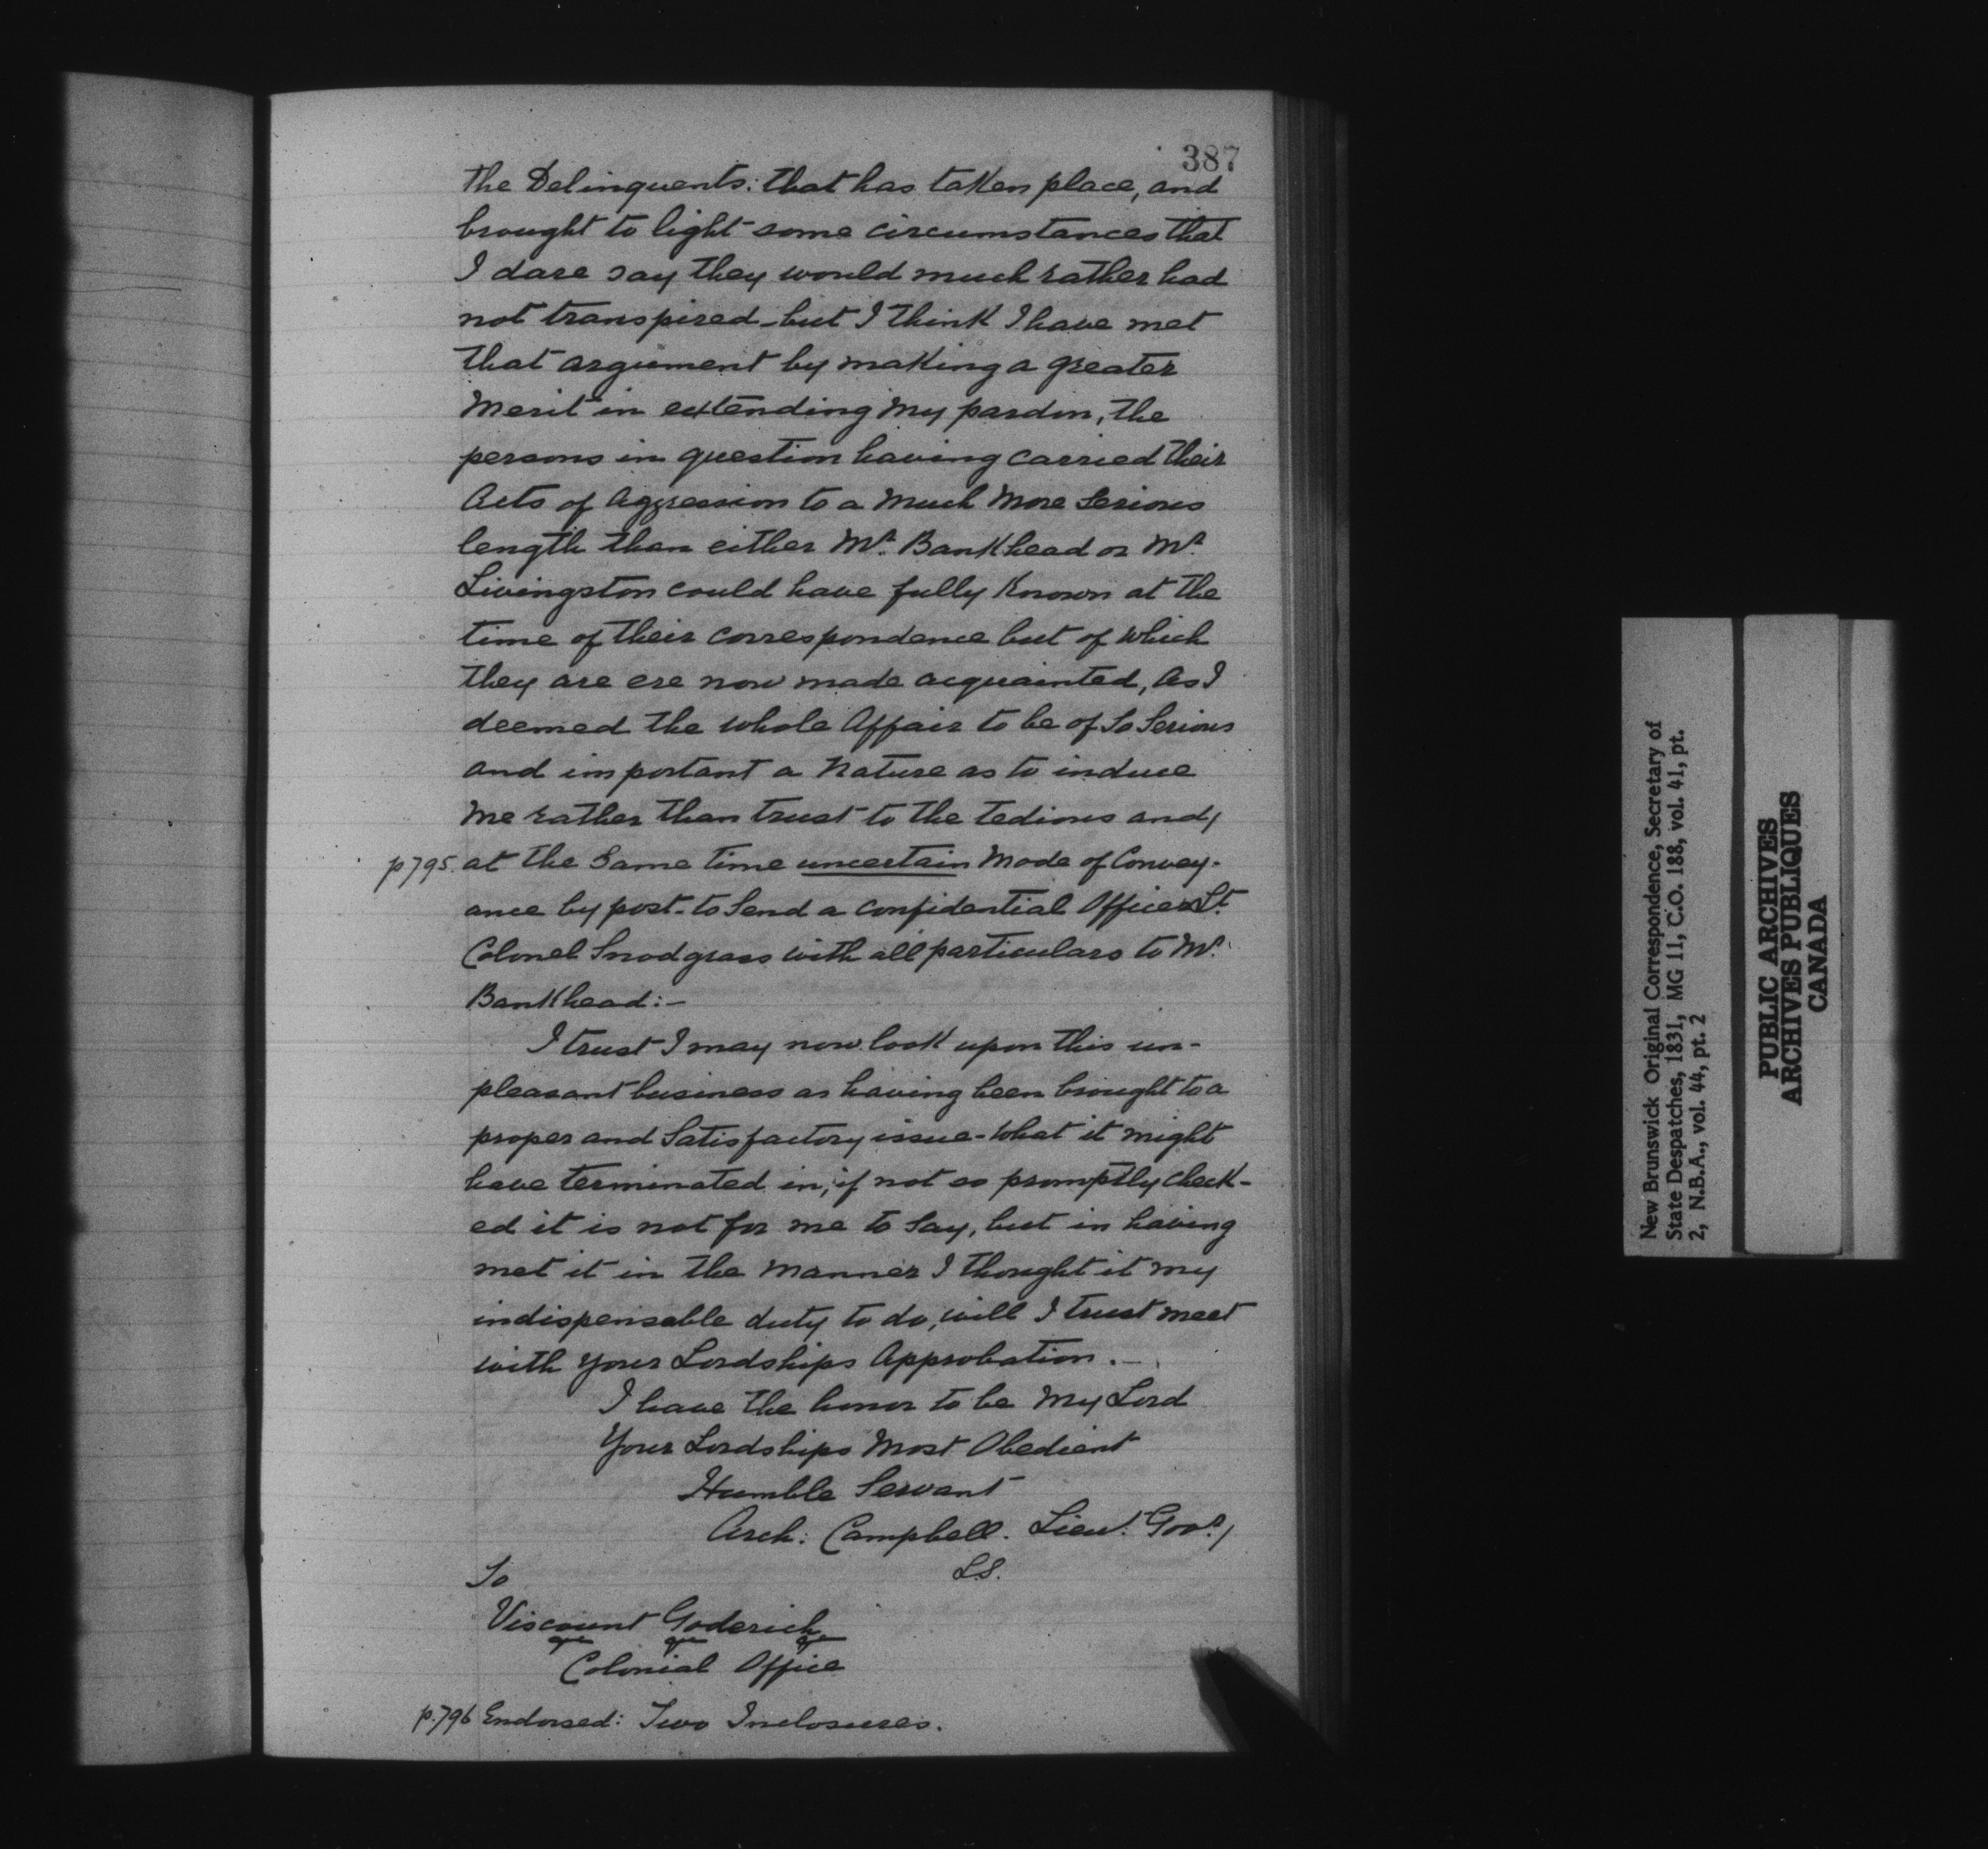 387
the Delinquents: that has taken place, and
brought to light some circumstances that
I dare say they would much rather had
not transpired - but I think I have met
that argument by making a greater
Merit in extending my pardon, the
persons in question having carried their
Acts of Aggression to a Much More Serious
length than either Mr. Bankhead or Mr.
Livingston could have fully Known at the
time of their correspondence but of which
they are ere now made acquainted, As I
deemed the whole Affair to be of So Serious
and important a Nature as to induce
Me rather than trust to the tedious and,
p795. at the Same time uncertain Mode of Convey-
ance by post - to Send a confidential Officer Lt.
Colonel Snodgrass with all particulars to Mr.
Bankhead:-
I trust I may now look upon this un-
pleasant business as having been brought to a
proper and Satisfactory issue - What it might
have terminated in, if not so promptly check-
ed it is not for me to Say, but in having
met it in the Manner I thought it my
indispensable duty to do, will I trust meet
with your Lordships Approbation.-
I have the honor to be My Lord
Your Lordships Most Obedient
Humble Servant
Arch: Campbell. Lieut. Govr,
L.S.
To
Viscount Goderich
Colonial Office
p.796 Endorsed: Two Inclosures.
New Brunswick Original Correspondence, Secretary of
State Despatches, 1831, MG 11, C.O. 188, vol. 41, pt.
2, N.B.A., vol. 44, pt. 2
PUBLIC ARCHIVES
ARCHIVES PUBLIQUES
CANADA